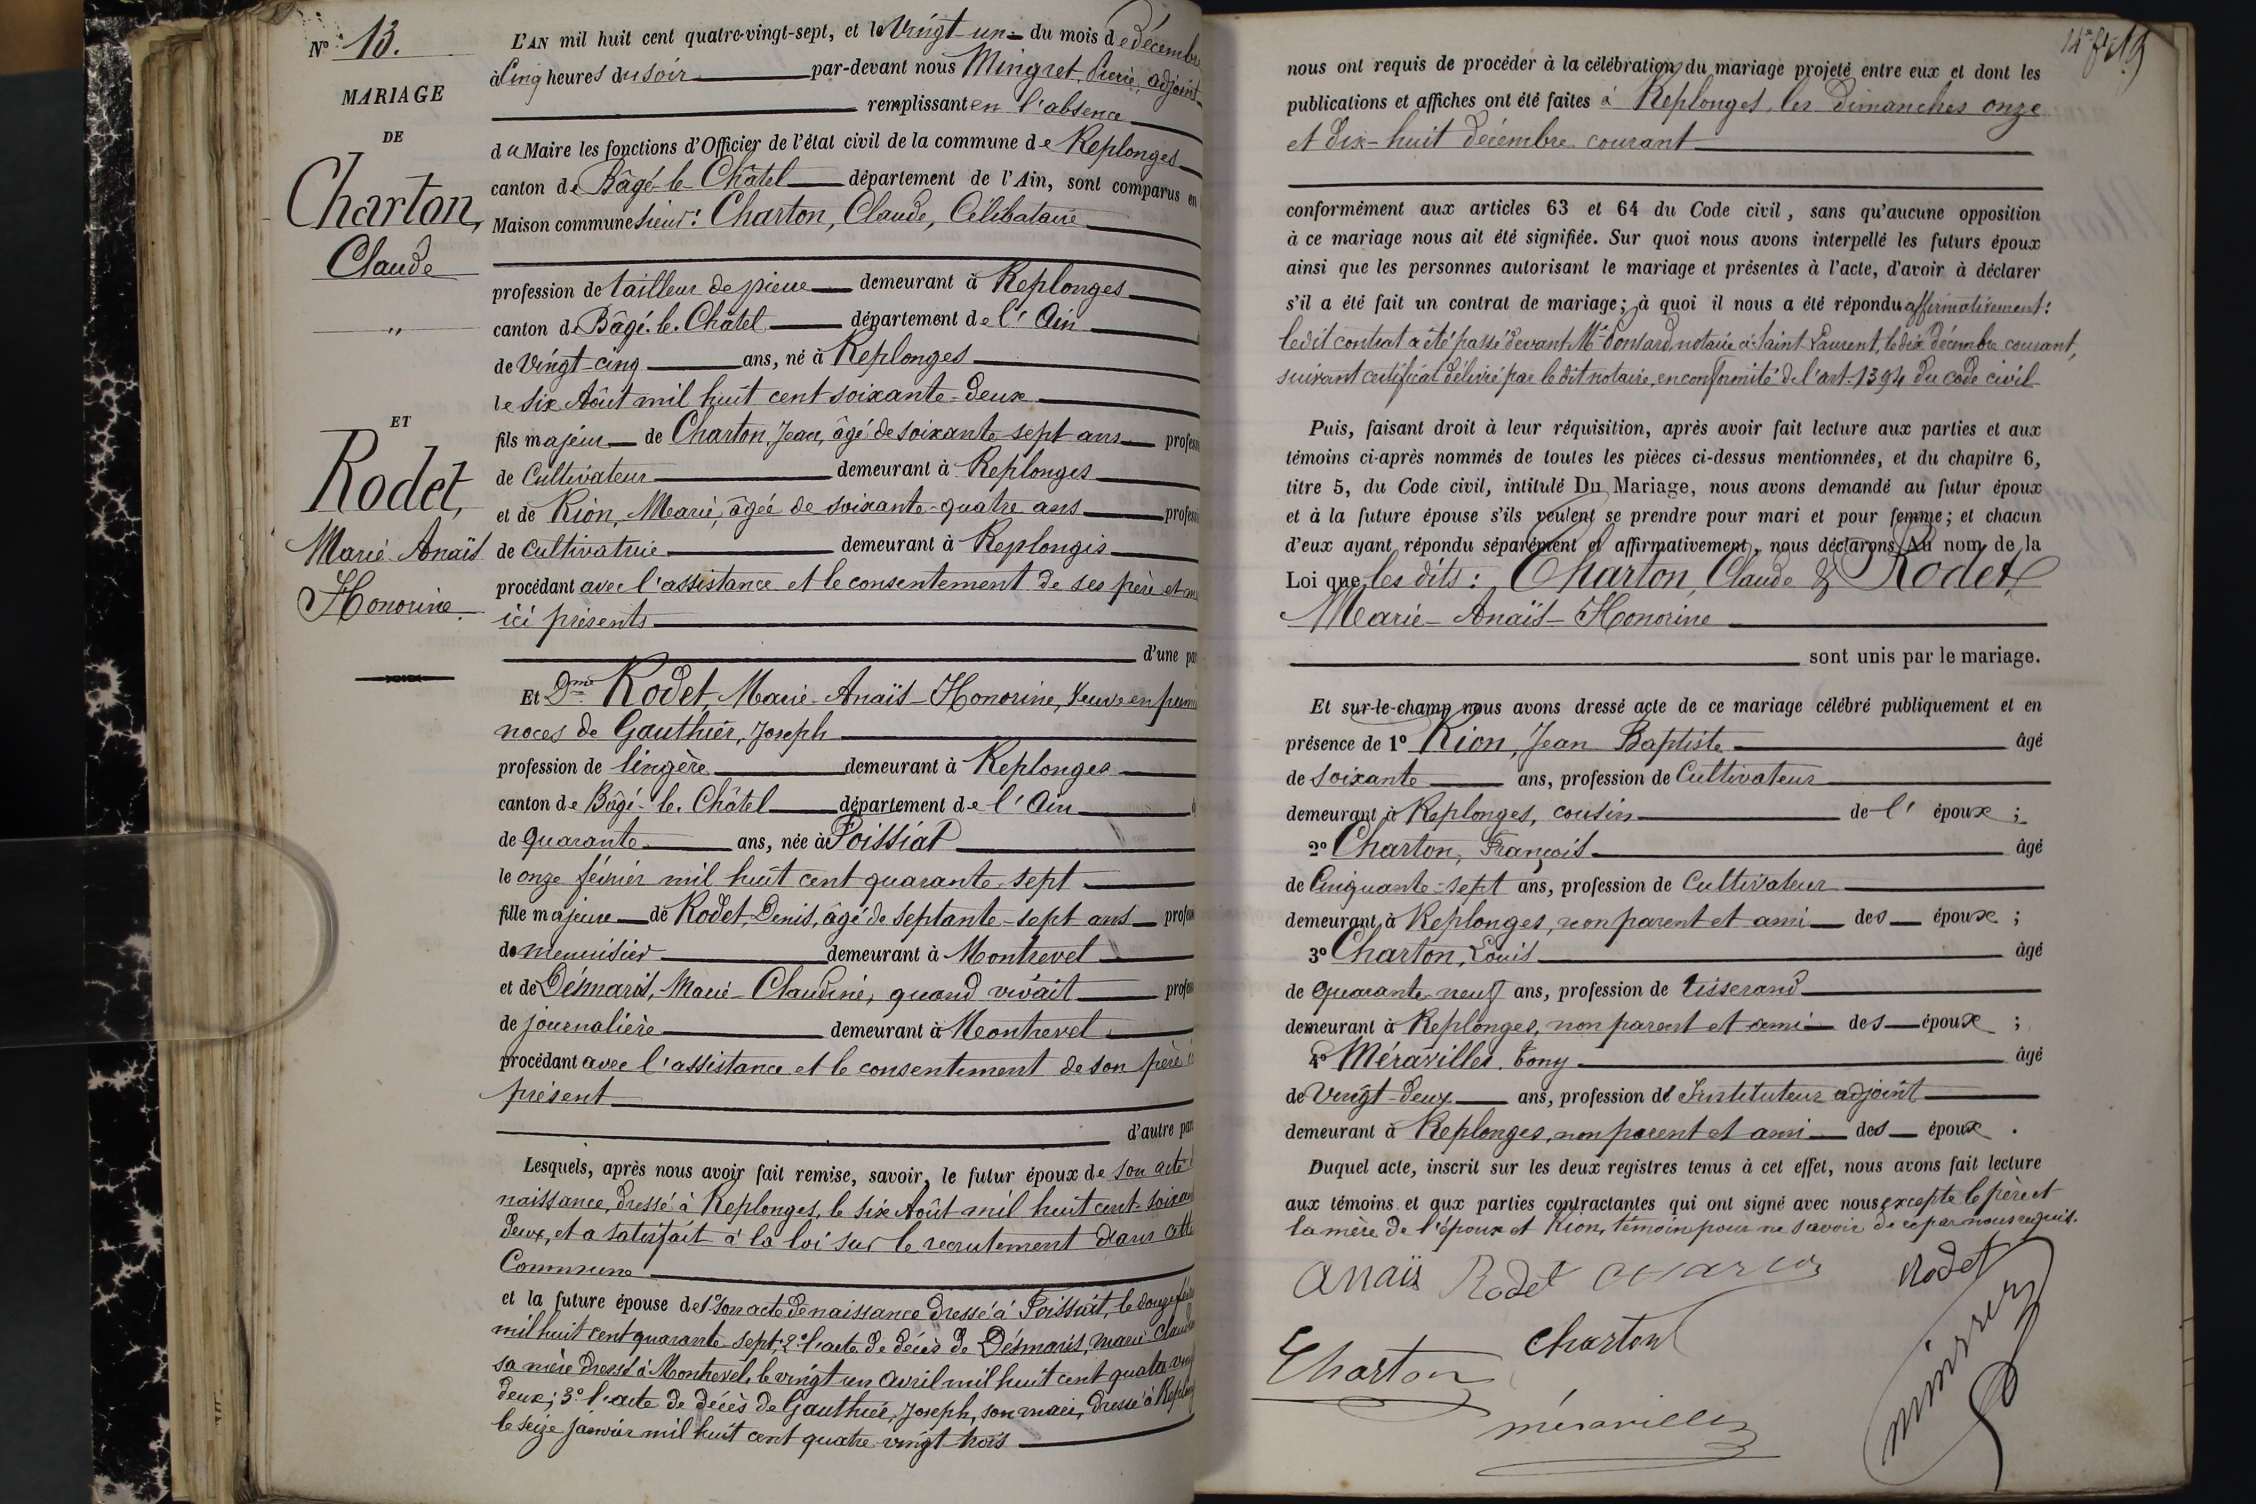 N° 13.
MARIAGE
DE
Charton,
Claude
"
ET
Rodet,
Marie Anaïs
Honorine.
L'AN mil huit cent quatre-vingt-sept, et le Vingt-un du mois de décembre
à Cinq heures du soir par-devant nous Mingret, Pierre, adjoint
remplissant en l'absence
du Maire les fonctions d'Officier de l'état civil de la commune de Replonges
canton de Bâgé-le-Châtel département de l'Ain, sont comparus en
Maison commune sieur: Charton, Claude, Célibataire
profession de tailleur de pierre demeurant à Replonges
canton de Bâgé-le-Châtel département de l'Ain
de Vingt-cinq ans, né à Replonges
le six Août mil huit cent soixante-deux
fils majeur de Charton, Jean, âgé de soixante sept ans profess
de Cultivateur demeurant à Replonges
et de Rion, Marie, âgée de soixante-quatre ans profess
de cultivatrice demeurant à Replonges
procédant avec l'assistance et le consentement de ses père et
ici présents
d'une par
Et Dme Rodet, Marie-Anaïs-Honorine, Veuve en prem
noces de Gauthier, Joseph
profession de lingère demeurant à Replonges
canton de Bâgé-le-Châtel département de l'Ain
de quarante ans, née à Foissiat
le onze février mil huit cent quarante-sept
fille majeure de Rodet, Denis, âgé de septante-sept ans profess
de menuisier demeurant à Montrevel
et de Désmaris, Marie-Claudine, quand vivait profess
de journalière demeurant à Montrevel
procédant avec l'assistance et le consentement de son père
présent
d'autre part
Lesquels, après nous avoir fait remise, savoir, le futur époux de son acte
naissance, dressé à Replonges, le six Août mil huit cent soixan
deux, et a satisfait à la loi sur le recrutement dans cette
Commune
et la future épouse de 1° son acte de naissance dressé à Foissiat, le douze
mil huit cent quarante-sept; 2° l'acte de décès de Désmaris, Marie Claud
sa mère dressé à Montrevel, le vingt un avril mil huit cent quatre ving
deux; 3° l'acte de décès de Gauthier, Joseph, son mari, dressé à Replon
le seize Janvier mil huit cent quatre-vingt trois
nous ont requis de procéder à la célébration du mariage projeté entre eux et dont les
publications et affiches ont été faites à Replonges, les Dimanches onze
et dix-huit décembre courant
conformément aux articles 63 et 64 du Code civil, sans qu'aucune opposition
à ce mariage nous ait été signifiée. Sur quoi nous avons interpellé les futurs époux
ainsi que les personnes autorisant le mariage et présentes à l'acte, d'avoir à déclarer
s'il a été fait un contrat de mariage; à quoi il nous a été répondu affirmativement:
le dit contrat a été passé devant Me notaire à Saint-Laurent, le dix décembre courant,
suivant certificat délivré par le dit notaire, en conformité de l'art. 1394 du code civil
Puis, faisant droit à leur réquisition, après avoir fait lecture aux parties et aux
témoins ci-après nommés de toutes les pièces ci-dessus mentionnées, et du chapitre 6,
titre 5, du Code civil, intitulé Du Mariage, nous avons demandé au futur époux
et à la future épouse s'ils veulent se prendre pour mari et pour femme; et chacun
d'eux ayant répondu séparément et affirmativement, nous déclarons Au nom de la
Loi que les dits: Charton, Claude & Rodet,
Marie-Anaïs-Honorine
sont unis par le mariage.
Et sur-le-champ nous avons dressé acte de ce mariage célébré publiquement et en
présence de 1° Rion, Jean Baptiste âgé
de soixante ans, profession de Cultivateur
demeurant à Replonges, cousin de l'époux;
2° Charton, François âgé
de Cinquante-sept ans, profession de Cultivateur
demeurant à Replonges, non parent et ami des époux;
3° Charton, Louis âgé
de quarante-neuf ans, profession de tisserand
demeurant à Replonges, non parent et ami des époux;
4° Méravilles, Tony âgé
de Vingt-deux ans, profession de Instituteur adjoint
demeurant à Replonges, non parent et ami des époux.
Duquel acte, inscrit sur les deux registres tenus à cet effet, nous avons fait lecture
aux témoins et aux parties contractantes qui ont signé avec nous excepté le père et
la mère de l'époux et Rion, témoin pour ne savoir de ce par nous requis.
Anaïs Rodet Charton Rodet
Charton Charton
méravilles